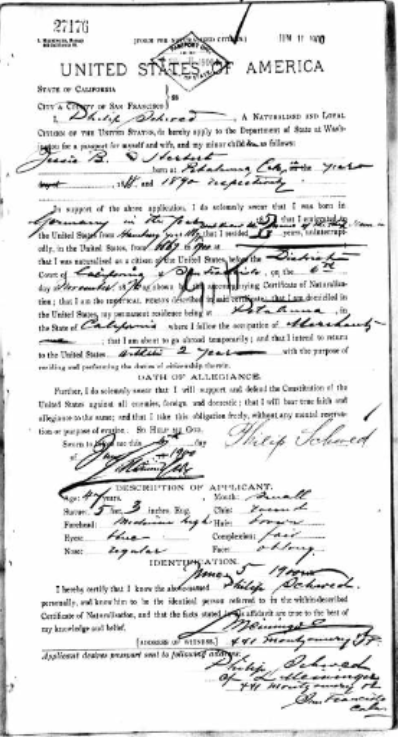 27176
[FORM FOR NATURALIZED CITIZEN.]
PASSPORT
OF STATE
UNITED STATES OF AMERICA
STATE OF CALIFORNIA
CITY & COUNTY OF SAN FRANCISCO } ss
I, Philip Schwed, A NATURALIZED AND LOYAL
CITIZEN OF THE UNITED STATES, do hereby apply to the Department of State at Wash-
ington for a passport for myself and wife, and my minor children as follows:
Jessie B. & Herbert
born at Petaluma Cal,
1890 respectively
In support of the above application, I do solemnly swear that I was born in
Germany that I emigrated to
the United States from Hamburg that I resided years, uninterrupt-
edly, in the United States, from
that I was naturalized as a citizen of the United States before the District
Court of California on the 6th
day of November accompanying Certificate of Naturaliza-
tion; that I am the IDENTICAL PERSON described in said certificate, that I am domiciled in
the United States, my permanent residence being at Petaluma, in
the State of California where I follow the occupation of Merchant
; that I am about to go abroad temporarily; and that I intend to return
to the United States within 2 years with the purpose of
residing and performing the duties of citizenship therein.
OATH OF ALLEGIANCE.
Further, I do solemnly swear that I will support and defend the Constitution of
the United States against all enemies, foreign and domestic; that I will bear true faith and
allegiance to the same; and that I take this obligation freely, without any mental reserva-
tion or purpose of evasion: SO HELP ME GOD.
Sworn to before me this day
Philip Schwed
of 1900
DESCRIPTION OF APPLICANT.
Age: years. Mouth: Small
Stature: 5 feet, 3 inches, Eng. Chin: round
Forehead: Medium high Hair: brown
Eyes: blue Complexion: fair
Nose: regular Face: oblong
IDENTIFICATION.
June 5 1900
I hereby certify that I know the above-named Philip Schwed
personally, and know him to be the identical person referred to in the within-described
Certificate of Naturalization, and that the facts stated in his affidavit are true to the best of
my knowledge and belief.
[ADDRESS OF WITNESS.] 441 Montgomery St
Applicant desires passport sent to following address:
Philip Schwed
c/o L Meininger
441 Montgomery St
San Francisco
Cala.